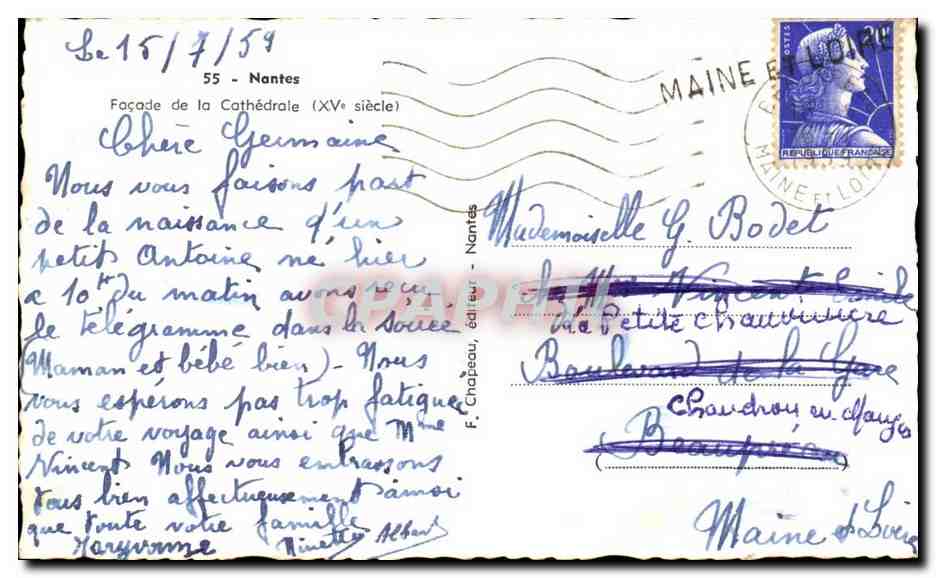 Le 15/7/59
55 - Nantes
Façade de la Cathédrale (XVe siècle)
Chère Germaine
Nous vous faisons part
de la naissance d'un
petit Antoine né hier
a 10h du matin avons reçu
le télégramme dans la soirée
(Maman et bébé bien). Nous
vous espérons pas trop fatiguée
de votre voyage ainsi que Mme
Vincent Nous vous embrassons
tous bien affectueusement
que toute votre famille
Maryvonne Ninette Albert
F. Chapeau, éditeur - Nantes
CPAPHIL
MAINE ET LOIRE
POSTES
20F
REPUBLIQUE FRANÇAISE
MAINE ET LOIRE
Mademoiselle G. Bodet
chez Mme Vincent Emile
La Petite Chauvinière
Boulevard de la Gare
Chaudron en Mauges
(Beaupréau)
Maine et Loire